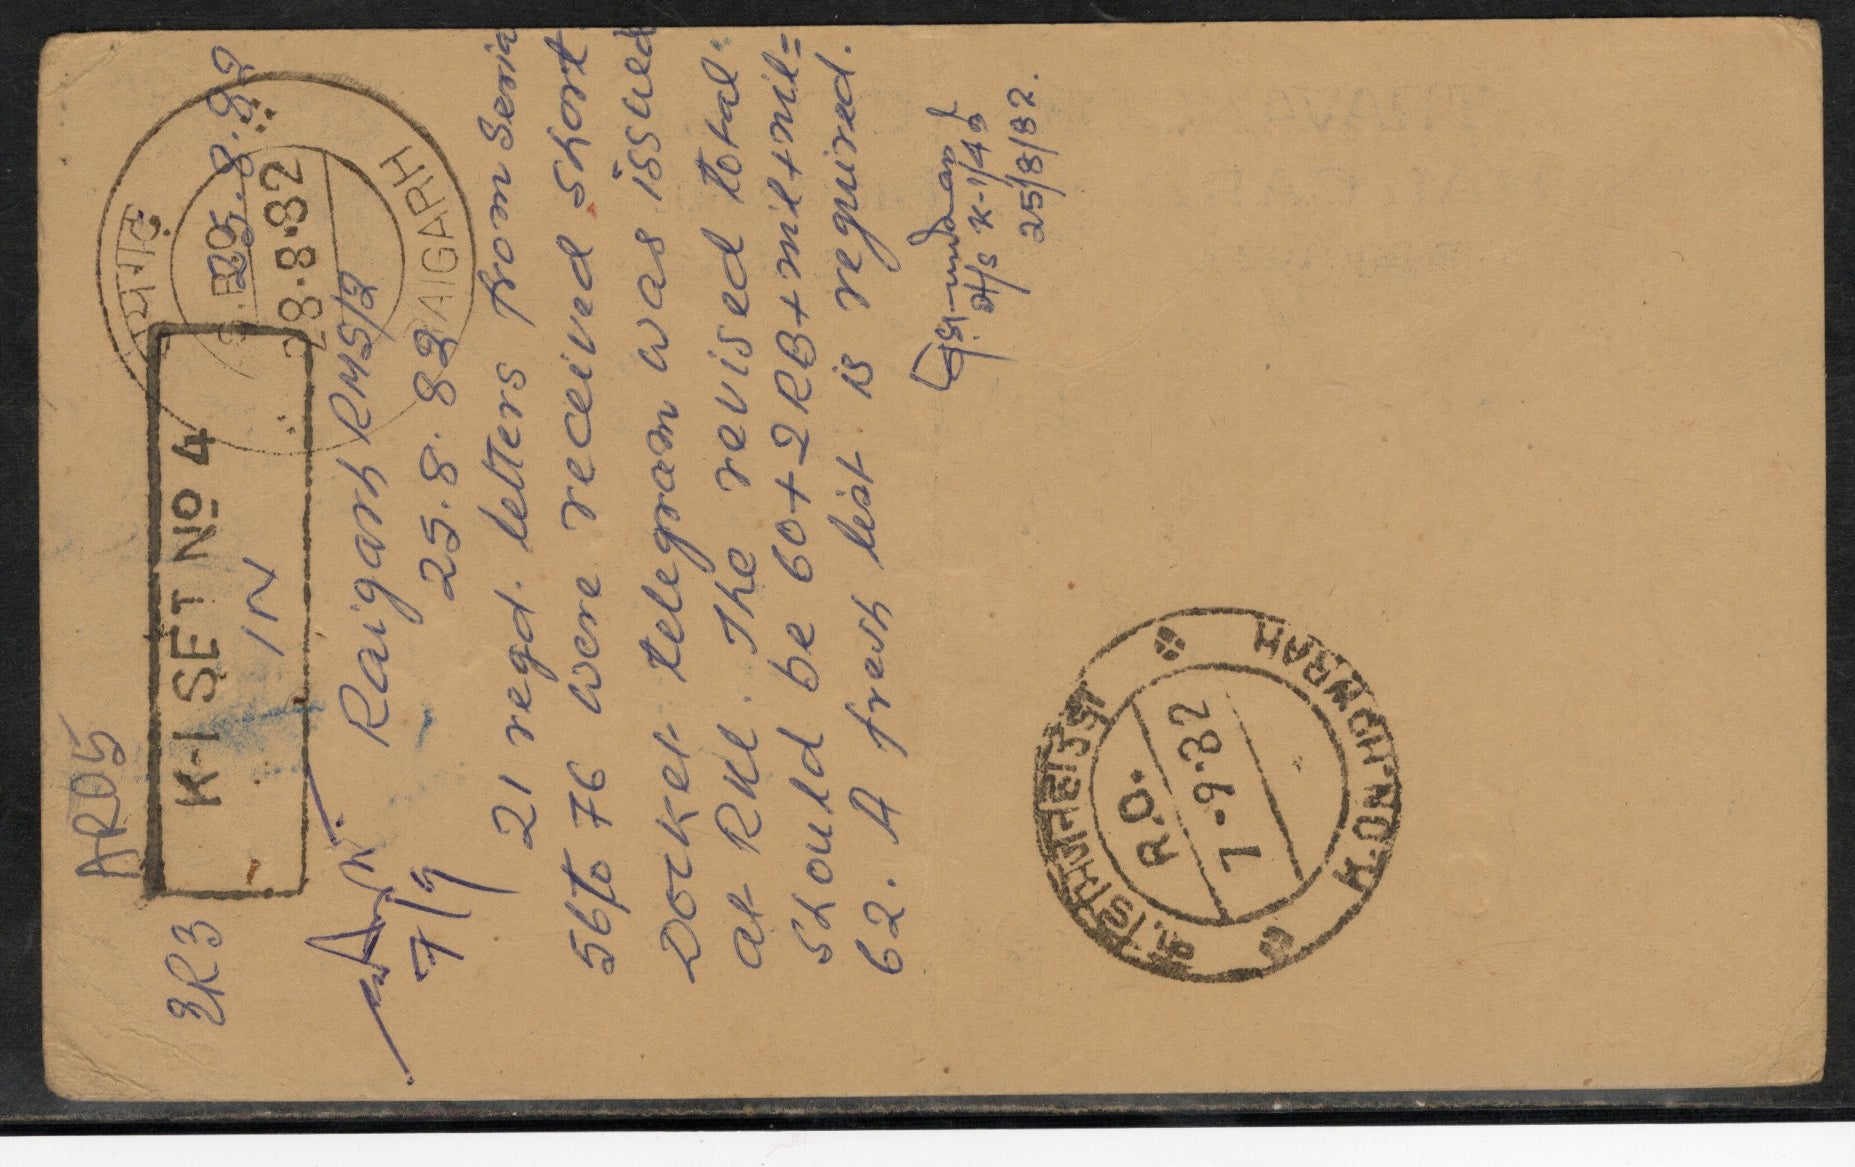 AR05
ER3
K-1 SET Nº 4
IN
25.8.82
रायगढ़
28.8.82
RAIGARH
Raigarh RMS/2
25.8.82
21 regd. letters from Seria
56 to 76 were received short
Docket telegram was issued
at RKL. The revised total
should be 60+2RB+nil+nil=
62. A fresh list is required.
K-1/4
25/8/82.
R.O.
7-9-82